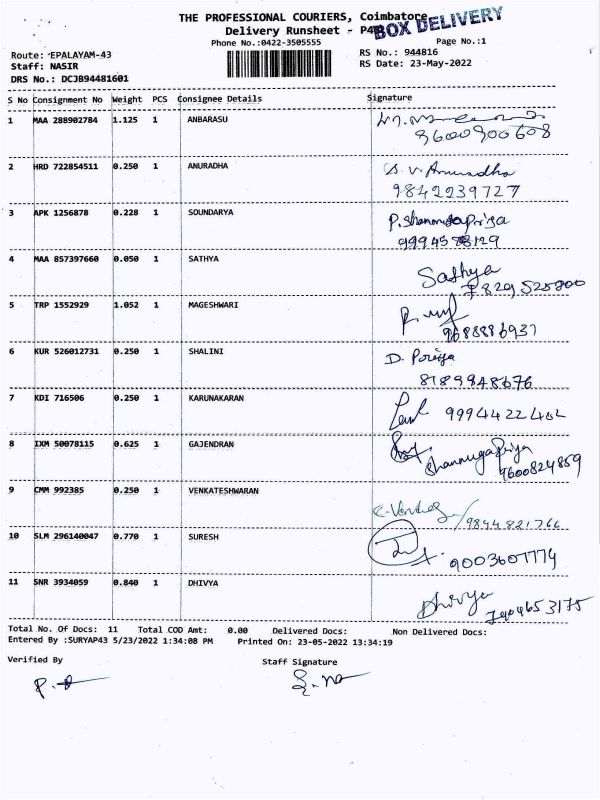 THE PROFESSIONAL COURIERS, Coimbatore
BOX DELIVERY
Delivery Runsheet - P43
Phone No.:0422-3505555 Page No.:1
Route: EPALAYAM-43 RS No.: 944816
Staff: NASIR RS Date: 23-May-2022
DRS No.: DCJB94481601
S No Consignment No Weight PCS Consignee Details Signature
1 MAA 288902784 1.125 1 ANBARASU
9600900608
2 HRD 722854511 0.250 1 ANURADHA S. V. Anuradha
9842239727
3 APK 1256878 0.228 1 SOUNDARYA P. Shanmugapriya
4 MAA 857397660 0.050 1 SATHYA Sathya
5 TRP 1552929 1.052 1 MAGESHWARI
9688886937
6 KUR 526012731 0.250 1 SHALINI D. Poriya
8189948676
7 KDI 716506 0.250 1 KARUNAKARAN 9994422402
8 IXM 50078115 0.625 1 GAJENDRAN ShanmugaPriya
9600824859
9 CMM 992385 0.250 1 VENKATESHWARAN
9894821766
10 SLM 296140047 0.770 1 SURESH
9003607774
11 SNR 3934059 0.840 1 DHIVYA Dhivya
7904653175
Total No. Of Docs: 11 Total COD Amt: 0.00 Delivered Docs: Non Delivered Docs:
Entered By :SURYAP43 5/23/2022 1:34:08 PM Printed On: 23-05-2022 13:34:19
Verified By Staff Signature